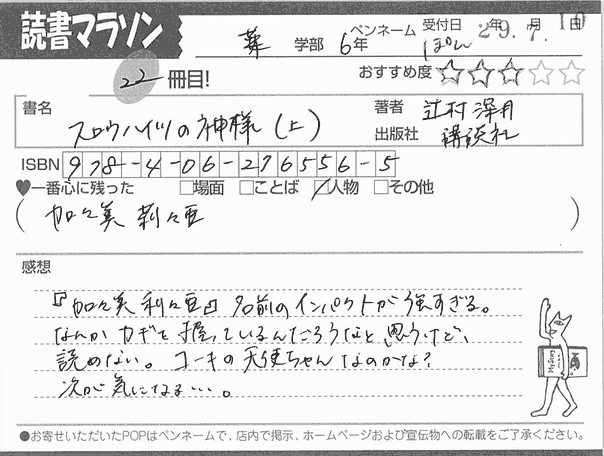 読書マラソン
薬 学部 6年 ペンネーム ぽん 受付日 29年 7月 10日
22 冊目!
おすすめ度 ★★★☆☆
書名 スロウハイツの神様(上)
著者 辻村深月
出版社 講談社
ISBN 978-4-06-276556-5
♥一番心に残った □場面 □ことば ☑人物 □その他
(加々美 莉々亜)
感想
『加々美 莉々亜』名前のインパクトが強すぎる。
なんかカギを握っているんだろうなと思うけど、
読めない。コーキの天使ちゃんなのかな?
次が気になる…。
●お寄せいただいたPOPはペンネームで、店内で掲示、ホームページおよび宣伝物への転載をご了承ください。